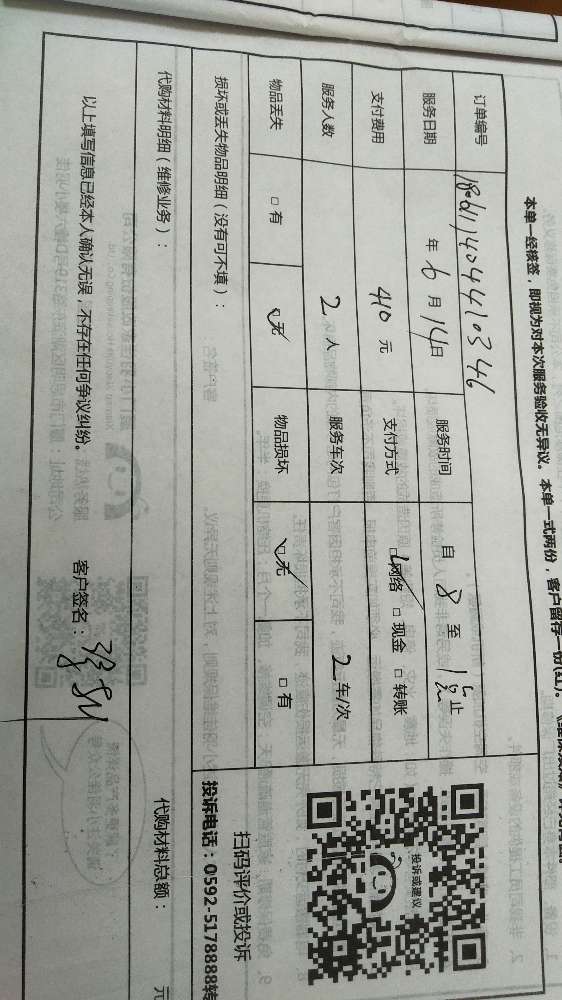 本单一经核签，即视为对本次服务验收无异议。本单一式两份，客户留存一份(红)。
订单编号 1806111404410346
服务日期 年 6 月 14 日 服务时间 自 8 至 1点 止
支付费用 410 元 支付方式 ☑网络 □现金 □转账
服务人数 2 人 服务车次 2 车/次
物品丢失 □有 ☑无 物品损坏 ☑无 □有
损坏或丢失物品明细（没有可不填）：
代购材料明细（维修业务）：
代购材料总额： 元
以上填写信息已经本人确认无误，不存在任何争议纠纷。 客户签名：
投诉或建议
扫码评价或投诉
投诉电话：0592-5178888转